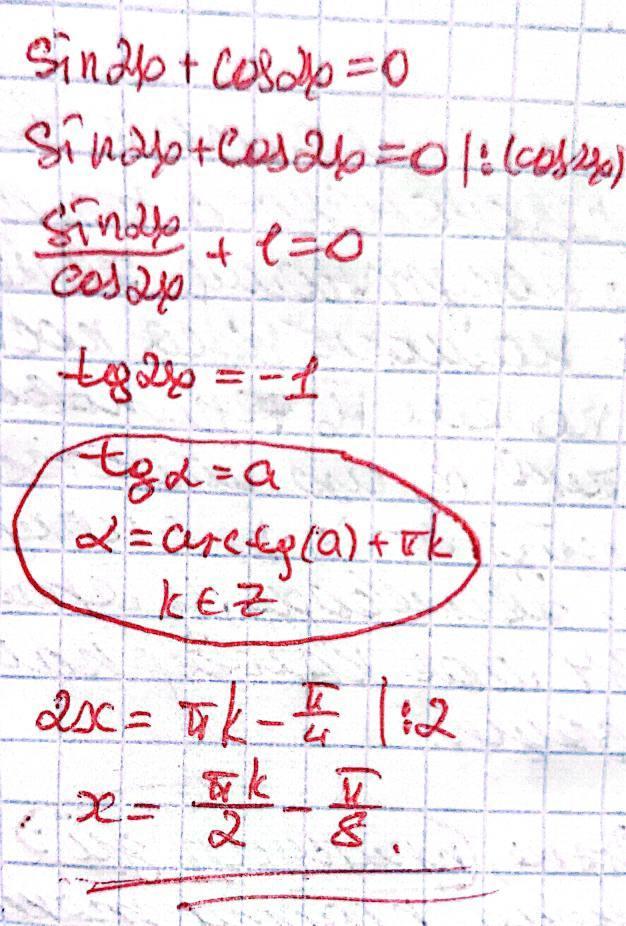 sin2x + cos2x = 0
sin2x + cos2x = 0 |:(cos2x)
sin2x/cos2x + 1 = 0
tg2x = -1
tgα = a
α = arctg(a) + πk
k ∈ Z
2x = πk - π/4 |:2
x = πk/2 - π/8.